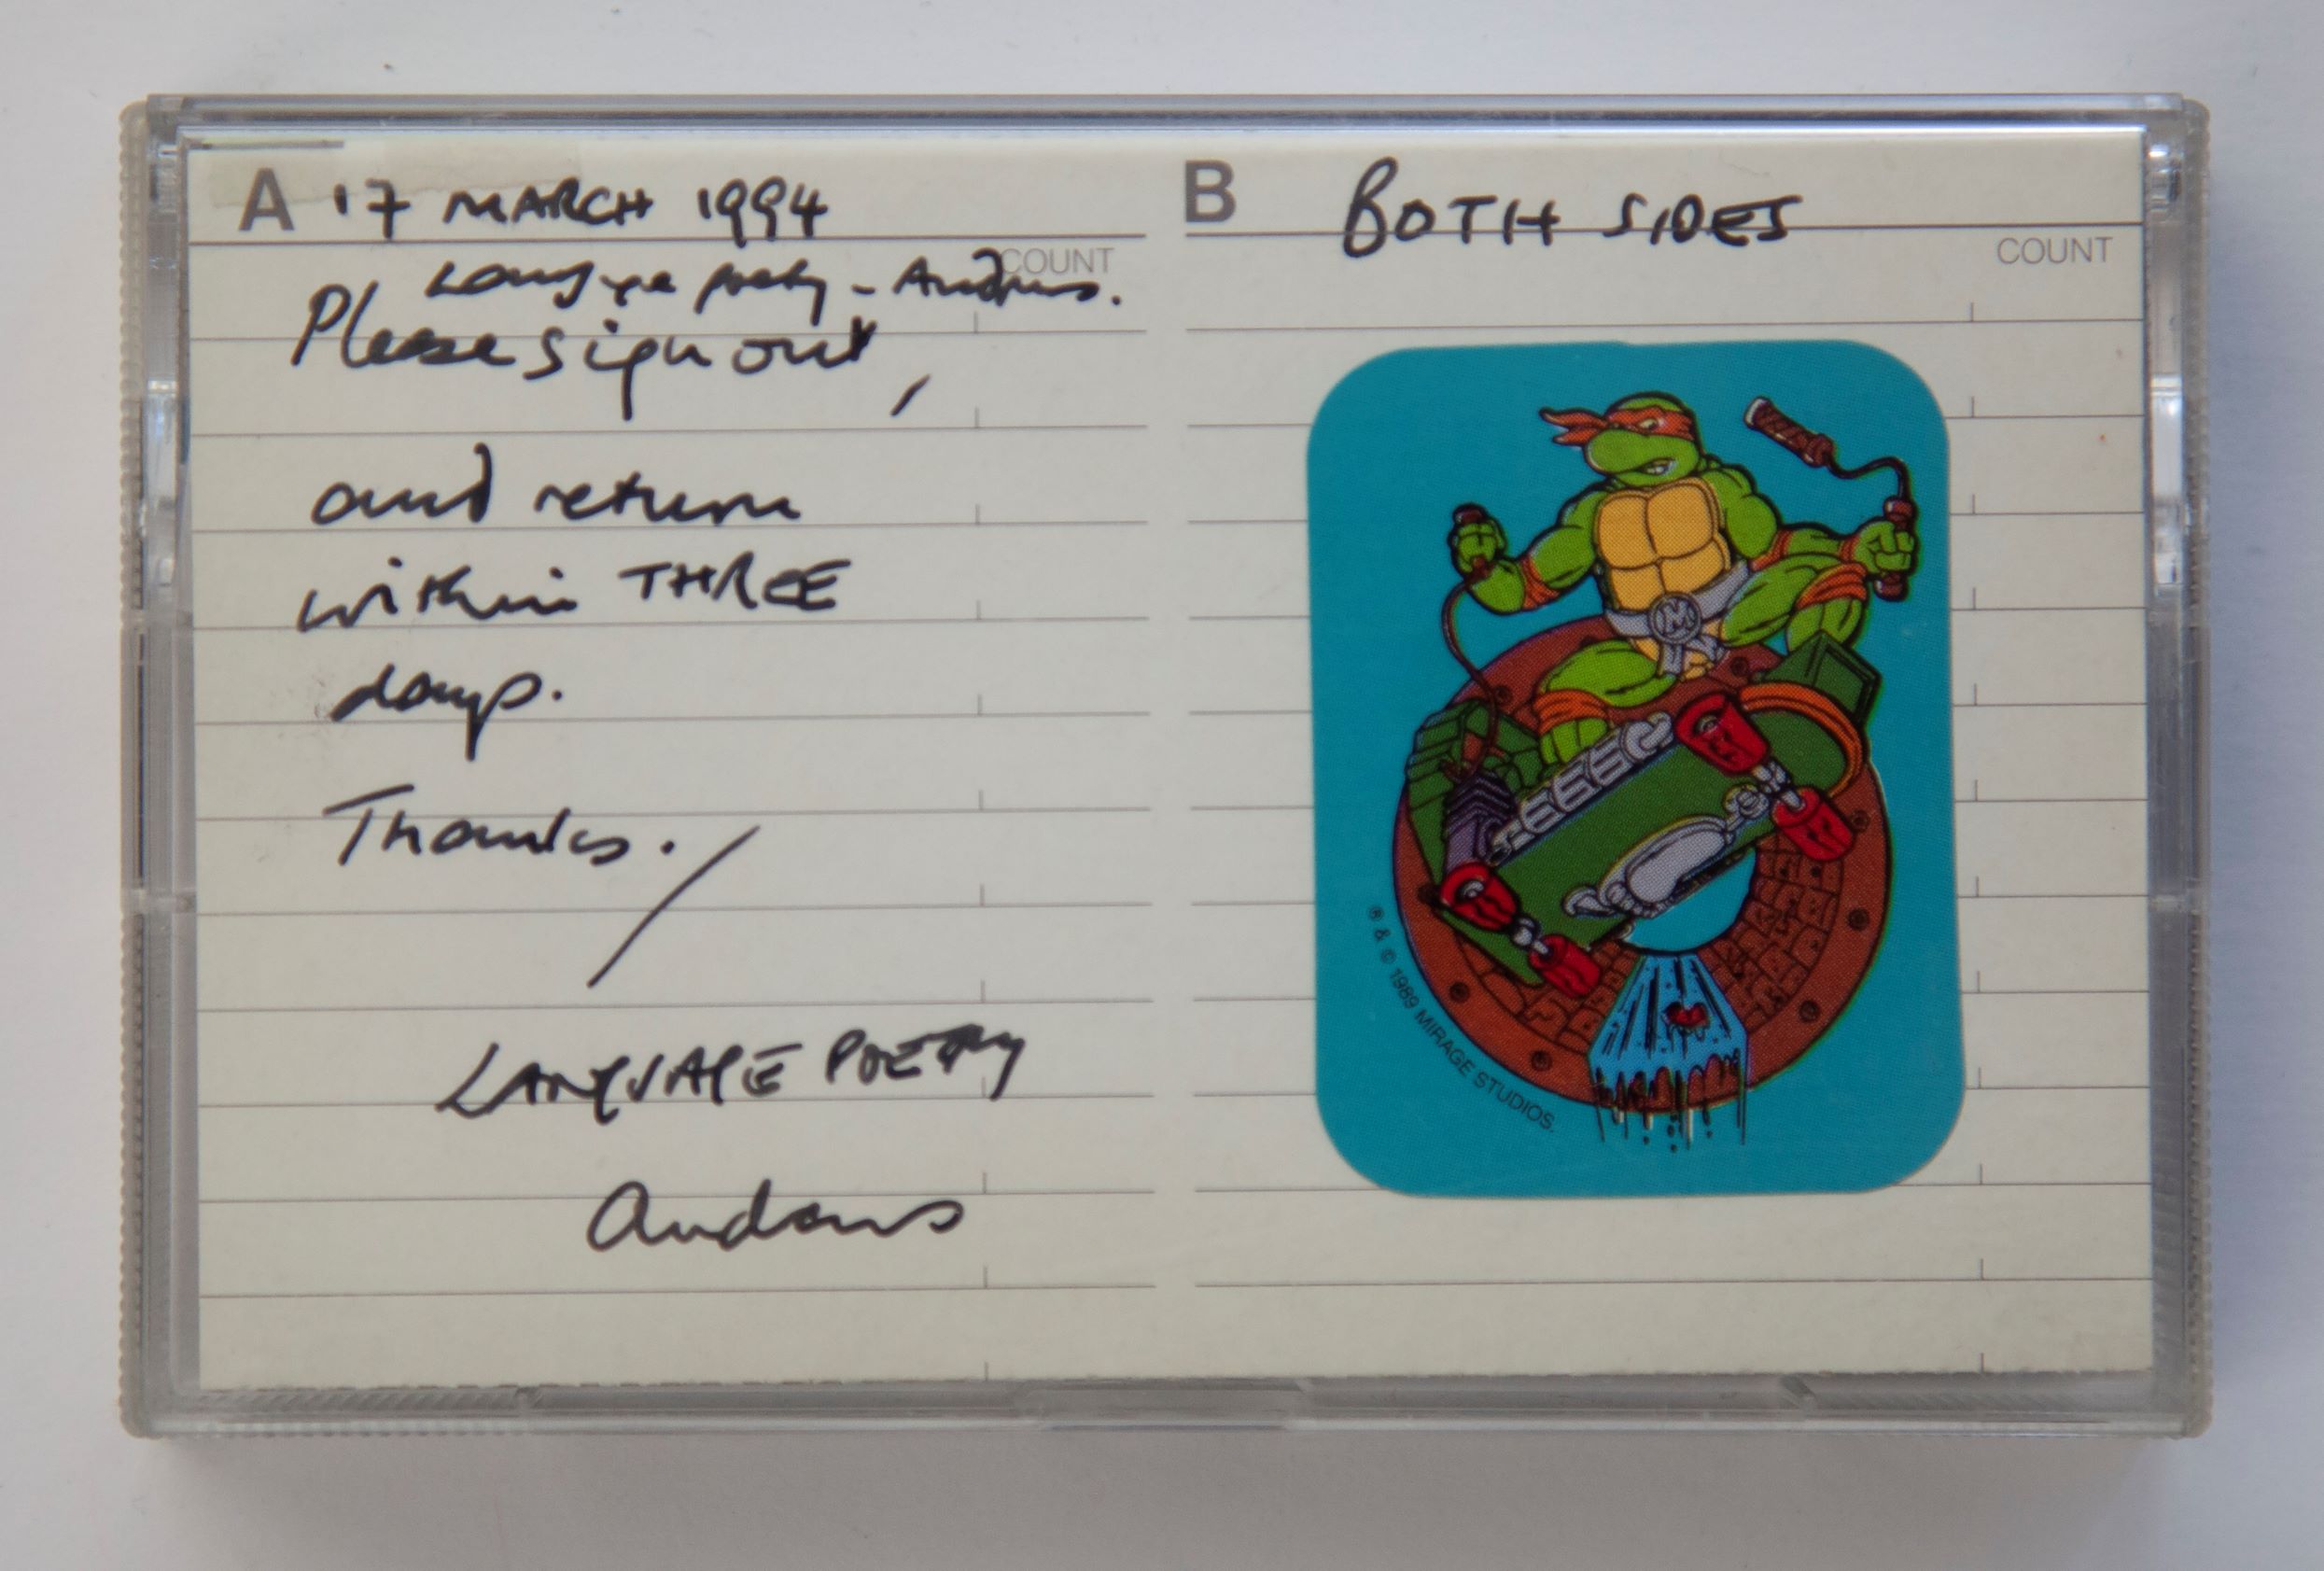 A 17 MARCH 1994
COUNT
Language poetry - Andrews.
Please sign out,
and return
within THREE
days.
Thanks.
LANGUAGE POETRY
Andrews
B BOTH SIDES
COUNT
M
® & © 1989 MIRAGE STUDIOS.